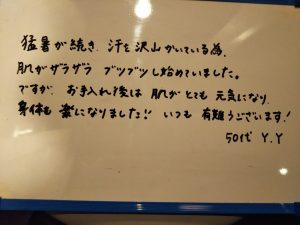 猛暑が続き、汗を沢山かいている為、
肌がザラザラ ブツブツし始めていました。
ですが、お手入れ後は 肌がとても 元気になり、
身体も 楽になりました!! いつも 有難うございます!
50代 Y.Y